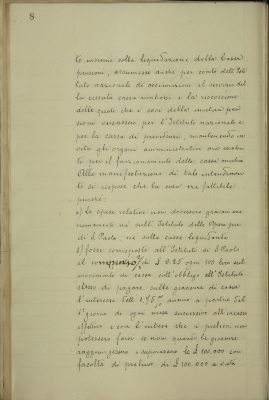 8
to insieme colla liquidazione della Cassa
pensioni, assumesse anche per conto dell'Isti
tuto nazionale di assicurazione il servizio del
la cessata cassa e la riscossione
delle quote che i soci della mutua pen
sioni versassero per l'Istituto nazionale e
per la cassa di previdenza, mantenendo in
vita gli organi amministrativi ora
ti per il funzionamento della cassa mutua
Alla manifestazione di tale intendimen
to si rispose che la cosa era fattibile
purchè:
a) le spese relative non dovessero gravare me
nomamente nè sull'Istituto delle Opere pie
di S. Paolo, nè sulla cassa liquidanda
b) fosse corrisposto all'Istituto di S. Paolo
il compenso di £ 0.25 ogni 100 lire sul
movimento di cassa coll'obbligo all'Istituto
stesso di pagare sulla giacenza di cassa
l'interesse dell' 1.75% annuo a partire dal
1° giorno di ogni mese successivo all'incasso
effettivo e con che i prelievi non
potessero farsi se non quando le giacenze
raggiungessero e superassero le £ 100.000 con
facoltà di prelievo di £ 100.000 a vista